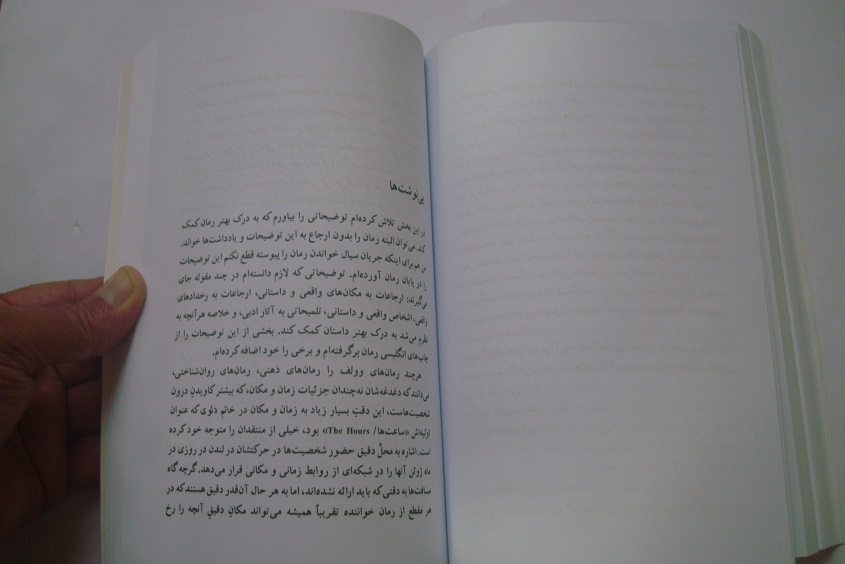 پی‌نوشت‌ها
در این بخش تلاش کرده‌ام توضیحاتی را بیاورم که به درک بهتر رمان کمک
کند. می‌توان البته رمان را بدون ارجاع به این توضیحات و یادداشت‌ها خواند.
من هم برای اینکه جریان سیال خواندن رمان را پیوسته قطع نکنم این توضیحات
را در پایان رمان آورده‌ام. توضیحاتی که لازم دانسته‌ام در چند مقوله جای
می‌گیرند: ارجاعات به مکان‌های واقعی و داستانی، ارجاعات به رخدادهای
واقعی، اشخاص واقعی و داستانی، تلمیحاتی به آثار ادبی، و خلاصه هرآنچه به
نظرم می‌شد به درک بهتر داستان کمک کند. بخشی از این توضیحات را از
چاپ‌های انگلیسی رمان برگرفته‌ام و برخی را خود اضافه کرده‌ام.
هرچند رمان‌های وولف را رمان‌های ذهنی، رمان‌های روان‌شناختی،
می‌دانند که دغدغه‌شان نه‌چندان جزئیات زمان و مکان، که بیشتر کاویدنِ درون
شخصیت‌هاست، این دقتِ بسیار زیاد به زمان و مکان در خانم دلوی که عنوان
اولیه‌اش «ساعت‌ها/ The Hours» بود، خیلی از منتقدان را متوجه خود کرده
است. اشاره به محلّ دقیق حضور شخصیت‌ها در حرکتشان در لندن در روزی در
ماه ژوئن آنها را در شبکه‌ای از روابط زمانی و مکانی قرار می‌دهد. گرچه گاه
مسافت‌ها به دقتی که باید ارائه نشده‌اند، اما به هر حال آن‌قدر دقیق هستند که در
هر مقطع از رمان خواننده تقریباً همیشه می‌تواند مکانِ دقیقِ آنچه را رخ